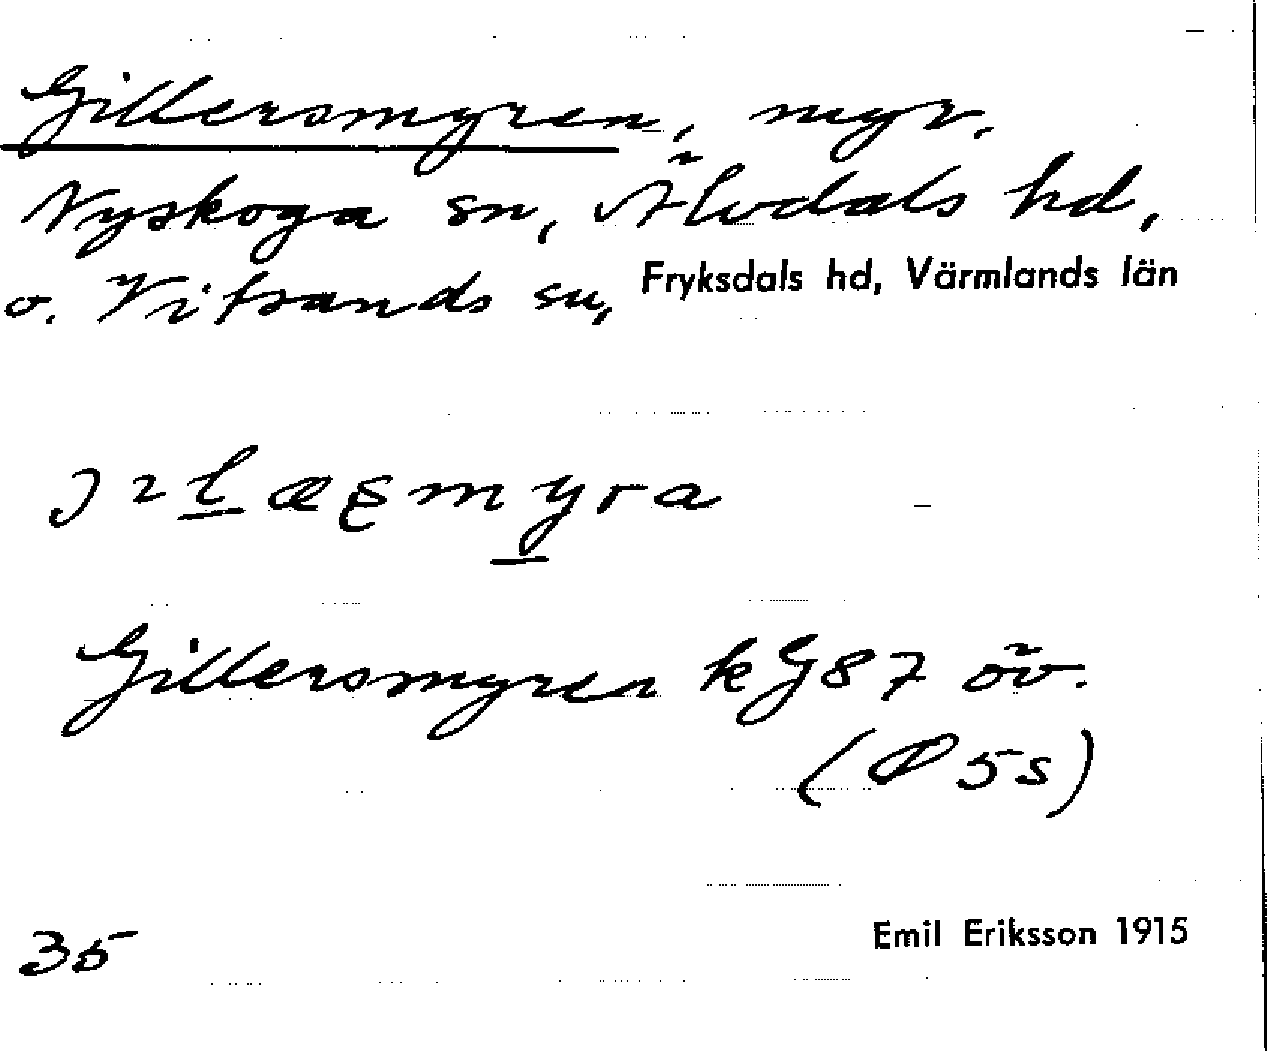 Gillersmyren, myr.
Nyskoga sn, Älvdals hd,
o. Vitsands sn, Fryksdals hd, Värmlands län
Gillersmyren kG87 öv.
(Ø 5s)
35 Emil Eriksson 1915